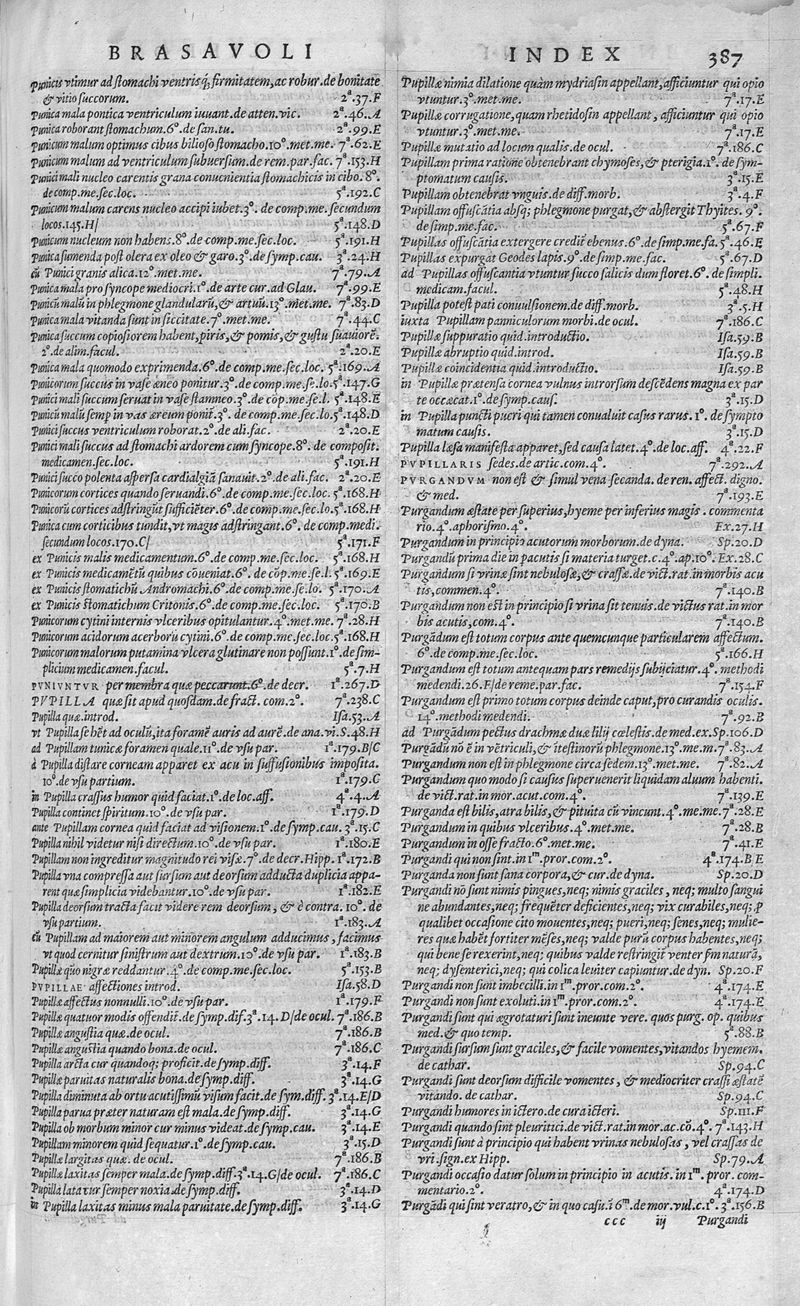 BRASAVOLI
Punicis vtimur ad stomachi ventrisq́; firmitatem, ac robur. de bonitate
& vitio succorum. 2ª.37.F
Punica mala pontica ventriculum iuuant. de atten. vic. 2ª.46.A
Punica roborant stomachum. 6º. de san. tu. 2ª.99.E
Punicum malum optimus cibus bilioso stomacho. 10º. met. me. 7ª.62.E
Punicum malum ad ventriculum subuersum. de rem. par. fac. 7ª.153.H
Punici mali nucleo carentis grana conuenientia stomachicis in cibo. 8º.
de comp. me. sec. loc. 5ª.192.C
Punicum malum carens nucleo accipi iubet. 3º. de comp. me. secundum
locos. 145. H/ 5ª.148.D
Punicum nucleum non habens. 8º. de comp. me. sec. loc. 5ª.191.H
Punica sumenda post olera ex oleo & garo. 3º. de symp. cau. 3ª.24.H
cū Punici granis alica. 12º. met. me. 7ª.79.A
Punica mala pro syncope mediocri. 1º. de arte cur. ad Glau. 7ª.99.E
Punicū malū in phlegmone glandularū, & artuū. 13º. met. me. 7ª.83.D
Punica mala vitanda sunt in siccitate. 7º. met. me. 7ª.44.C
Punica succum copiosiorem habent, piris, & pomis, & gustu suauiorē.
2º. de alim. facul. 2ª.20.E
Punica mala quomodo exprimenda. 6º. de comp. me. sec. loc. 5ª.169.A
Punicorum succus in vase æneo ponitur. 3º. de comp. me. se. lo. 5ª.147.G
Punici mali succum seruat in vase stamneo. 3º. de cōp. me. se. l. 5ª.148.E
Punicū malū semp in vas æreum ponit. 3º. de comp. me. sec. lo. 5ª.148.D
Punici succus ventriculum roborat. 2º. de ali. fac. 2ª.20.E
Punici mali succus ad stomachi ardorem cum syncope. 8º. de composit.
medicamen. sec. loc. 5ª.191.H
Punici succo polenta aspersa cardialgiā sanauit. 2º. de ali. fac. 2ª.20.E
Punicorum cortices quando seruandi. 6º. de comp. me. sec. loc. 5ª.168.H
Punicorū cortices adstringūt sufficiēter. 6º. de comp. me. sec. lo. 5ª.168.H
Punica cum corticibus tundit, vt magis adstringant. 6º. de comp. medi.
secundum locos. 170. C/ 5ª.171.F
ex Punicis malis medicamentum. 6º. de comp. me. sec. loc. 5ª.168.H
ex Punicis medicamētū quibus cōueniat. 6º. de cōp. me. se. l. 5ª.169.E
ex Punicis stomatichū Andromachi. 6º. de comp. me. se. lo. 5ª.170.A
ex Punicis stomatichum Critonis. 6º. de comp. me. sec. loc. 5ª.170.B
Punicorum cytini internis vlceribus opitulantur. 4º. met. me. 7ª.28.H
Punicorum acidorum acerborū cytini. 6º. de comp. me. sec. loc. 5ª.168.H
Punicorum malorum putamina vlcera glutinare non possunt. 1º. de sim-
plicium medicamen. facul. 5ª.7.H
PVNIVNTVR per membra quæ peccarunt. 6º. de decr. 1ª.267.D
PVPILLA quæ sit apud quosdam. de fract. com. 2º. 7ª.238.C
Pupilla quæ. introd. Isa.53.A
vt Pupilla se hēt ad oculū, ita foramē auris ad aurē. de ana. vi. S.48.H
ad Pupillam tunicæ foramen quale. 11º. de vsu par. 1ª.179.B/C
à Pupilla distare corneam apparet ex acu in suffusionibus imposita.
10º. de vsu partium. 1ª.179.C
in Pupilla crassus humor quid faciat. 1º. de loc. aff. 4ª.4.A
Pupilla continet spiritum. 10º. de vsu par. 1ª.179.D
ante Pupillam cornea quid faciat ad visionem. 1º. de symp. cau. 3ª.15.C
Pupilla nihil videtur nisi directum. 10º. de vsu par. 1ª.180.E
Pupillam non ingreditur magnitudo rei visæ. 7º. de decr. Hipp. 1ª.172.B
Pupilla vna compressa aut sursum aut deorsum adducta duplicia appa-
rent quæ simplicia videbantur. 10º. de vsu par. 1ª.182.E
Pupilla deorsum tracta facit videre rem deorsum, & è contra. 10º. de
vsu partium. 1ª.183.A
Cū Pupillam ad maiorem aut minorem angulum adducimus, facimus
vt quod cernitur sinistrum aut dextrum. 10º. de vsu par. 1ª.183.B
Pupillæ quo nigræ reddantur. 4º. de comp. me. sec. loc. 5ª.153.B
PVPILLAE affectiones introd. Isa.58.D
Pupillæ affectus nonnulli. 10º. de vsu par. 1ª.179.F
Pupillæ quatuor modis offendit. de symp. dif. 3ª.14. D/de ocul. 7ª.186.B
Pupillæ angustia quæ. de ocul. 7ª.186.B
Pupillæ angustia quando bona. de ocul. 7ª.186.C
Pupilla arcta cur quandoq; proficit. de symp. diff. 3ª.14.F
Pupillæ paruitas naturalis bona. de symp. diff. 3ª.14.G
Pupilla diminuta ab ortu acutissimū visum facit. de sym. diff. 3ª.14.E/D
Pupilla parua præter naturam est mala. de symp. diff. 3ª.14.G
Pupilla ob morbum minor cur minus videat. de symp. cau. 3ª.14.E
Pupillam minorem quid sequatur. 1º. de symp. cau. 3ª.15.D
Pupillæ largitas quæ. de ocul. 7ª.186.B
Pupillæ laxitas semper mala. de symp. diff. 3ª.14. G/de ocul. 7ª.186.C
Pupilla latatur semper noxia. de symp. diff. 3ª.14.D
in Pupilla laxitas minus mala paruitate. de symp. diff. 3ª.14.G
INDEX 387
Pupillæ nimia dilatione quàm mydriasin appellant, afficiuntur qui opio
vtuntur. 3º. met. me. 7ª.17.E
Pupillæ corrugatione, quam rhetidosin appellant, afficiuntur qui opio
vtuntur. 3º. met. me. 7ª.17.E
Pupillæ mutatio ad locum qualis. de ocul. 7ª.186.C
Pupillam prima ratione obtenebrant chymoses, & pterigia. 1º. de sym-
ptomatum causis. 3ª.15.E
Pupillam obtenebrat vnguis. de diff. morb. 3ª.4.F
Pupillam offuscātia absq; phlegmone purgat, & abstergit Thyites. 9º.
de simp. me. fac. 5ª.67.F
Pupillas offuscātia extergere credit ebenus. 6º. de simp. me. fa. 5ª.46.E
Pupillas expurgat Geodes lapis. 9º. de simp. me. fac. 5ª.67.D
ad Pupillas offuscantia vtuntur succo salicis dum floret. 6º. de simpli.
medicam. facul. 5ª.48.H
Pupilla potest pati conuulsionem. de diff. morb. 3ª.5.H
iuxta Pupillam panniculorum morbi. de ocul. 7ª.186.C
Pupillæ suppuratio quid. introductio. Isa.59.B
Pupillæ abruptio quid. introd. Isa.59.B
Pupillæ coincidentia quid. introductio. Isa.59.B
in Pupillæ prætensa cornea vulnus introrsum descēdens magna ex par
te occæcat. 1º. de symp. caus. 3ª.15.D
in Pupilla puncti pueri qui tamen conualuit casus rarus. 1º. de sympto
matum causis. 3ª.15.D
Pupilla læsa manifesta apparet, sed causa latet. 4º. de loc. aff. 4ª.22.F
PVPILLARIS sedes. de artic. com. 4º. 7ª.292.A
PVRGANDVM non est & simul vena secanda. de ren. affect. digno.
& med. 7ª.193.E
Purgandum æstate per superius, hyeme per inferius magis. commenta
rio. 4º. aphorismo. 4º. Ex.27.H
Purgandum in principio acutorum morborum. de dyna. Sp.20.D
Purgandū prima die in pacutis si materia turget. c. 4º. ap. 10º. Ex.28.C
Purgandum si vrinæ sint nebulosæ, & crassæ. de vict. rat. in morbis acu
tis, commen. 4º. 7ª.140.B
Purgandum non est in principio si vrina sit tenuis. de victus rat. in mor
bis acutis, com. 4º. 7ª.140.B
Purgādum est totum corpus ante quemcunque particularem affectum.
6º. de comp. me. sec. loc. 5ª.166.H
Purgandum est totum antequam pars remedijs subijciatur. 4º. methodi
medendi. 26. F/de reme. par. fac. 7ª.154.F
Purgandum est primo totum corpus deinde caput, pro curandis oculis.
14º. methodi medendi. 7ª.92.B
ad Purgādum pectus drachmæ duæ lilij cælestis. de med. ex. Sp.106.D
Purgādū nō ē in vētriculi, & itestinorū phlegmone. 13º. me. m. 7ª.83.A
Purgandum non est in phlegmone circa sedem. 13º. met. me. 7ª.82.A
Purgandum quo modo si causus superuenerit liquidam aluum habenti.
de vict. rat. in mor. acut. com. 4º. 7ª.139.E
Purganda est bilis, atra bilis, & pituita cū vincunt. 4º. me. me. 7ª.28.E
Purgandum in quibus vlceribus. 4º. met. me. 7ª.28.B
Purgandum in osse fracto. 6º. met. me. 7ª.41.E
Purgandi qui non sint. in 1ᵐ. pror. com. 2º. 4ª.174.B E
Purganda non sunt sana corpora, & cur. de dyna. Sp.20.D
Purgandi nō sunt nimis pingues, neq; nimis graciles, neq; multo sangui
ne abundantes, neq; frequēter deficientes, neq; vix curabiles, neq; p
qualibet occasione cito mouentes, neq; pueri, neq; senes, neq; mulie-
res quæ habēt fortiter mēses, neq; valde purū corpus habentes, neq;
qui bene se rexerint, neq; quibus valde restringit venter fm naturā,
neq; dysenterici, neq; qui colica leuiter capiuntur. de dyn. Sp.20.F
Purgandi non sunt imbecilli. in 1ᵐ. pror. com. 2º. 4ª.174.E
Purgandi non sunt exoluti. in 1ᵐ. pror. com. 2º. 4ª.174.E
Purgandi sunt qui ægrotaturi sunt ineunte vere. quos purg. op. quibus
med. & quo temp. 5ª.88.B
Purgandi sursum sunt graciles, & facile vomentes, vitandos hyemem.
de cathar. Sp.94.C
Purgandi sunt deorsum difficile vomentes, & mediocriter crassi æstatē
vitando. de cathar. Sp.94.C
Purgandi humores in ictero. de cura icteri. Sp.111.F
Purgandi quando sint pleuritici. de vict. rat. in mor. ac. cō. 4º. 7ª.143.H
Purgandi sunt à principio qui habent vrinas nebulosas, vel crassas de
vri. sign. ex Hipp. Sp.79.A
Purgandi occasio datur solum in principio in acutis. in 1ᵐ. pror. com-
mentario. 2º. 4ª.174.D
Purgādi qui sint veratro, & in quo casu. ī 6ᵐ. de mor. vul. c. 1º. 3ª.156.B
ccc iij Purgandi